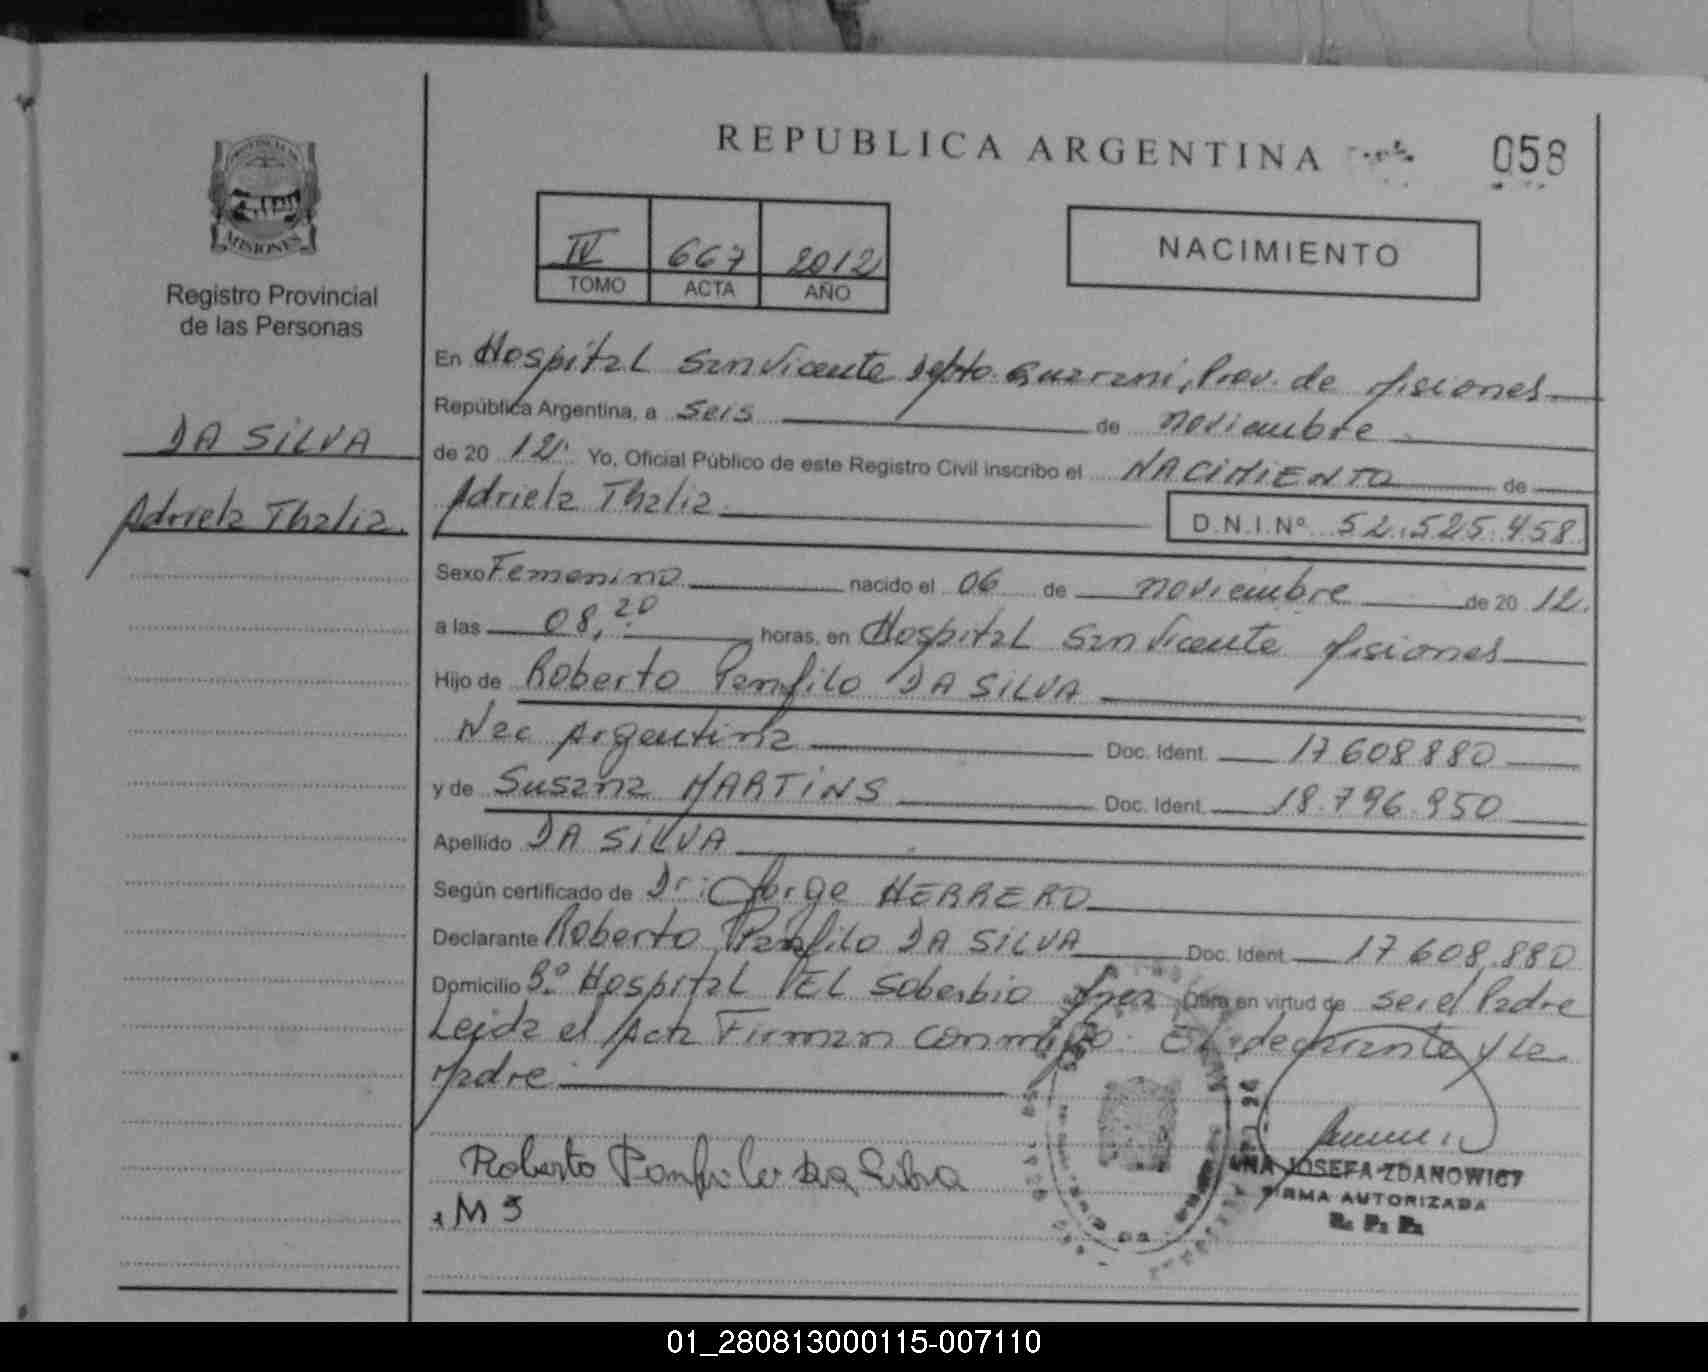 REPUBLICA ARGENTINA
058
PROVINCIA DE
MISIONES
Registro Provincial
de las Personas
IV 667 2012
TOMO ACTA AÑO
NACIMIENTO
DA SILVA
Adriela Thalia.
En Hospital San Vicente Depto. Guarani, Prov. de Misiones
República Argentina, a seis de noviembre
de 20 12. Yo, Oficial Público de este Registro Civil inscribo el NACIMIENTO de
Adriela Thalia
D.N.I.Nº 52.525.458
Sexo Femenino nacido el 06 de noviembre de 20 12.
a las 08,20 horas, en Hospital San Vicente Misiones
Hijo de Roberto Panfilo DA SILVA
Nac Argentina Doc. Ident. 17 608 880
y de Susana MARTINS Doc. Ident. 18.796.950
Apellido DA SILVA
Según certificado de Dr: Jorge HERRERO
Declarante Roberto Panfilo DA SILVA Doc. Ident. 17 608.880
Domicilio Bº Hospital EL Soberbio Obra en virtud de ser el Padre
Leida el Acta Firman conmigo. El declarante y la
Madre
Roberto Panfilo Da Silva
MS
ANA JOSEFA ZDANOWICZ
FIRMA AUTORIZADA
R. P. P.
01_280813000115-007110